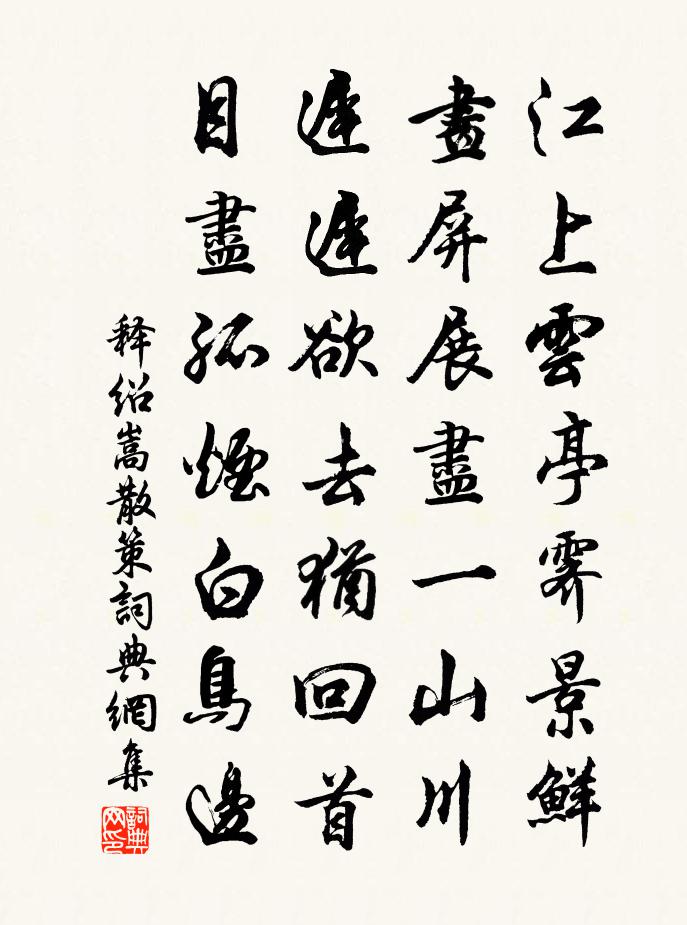 江上雲亭霽景鮮
畫屏展盡一山川
遲遲欲去猶回首
目盡孤煙白鳥邊
释紹嵩散策詞典網集
詞典网印